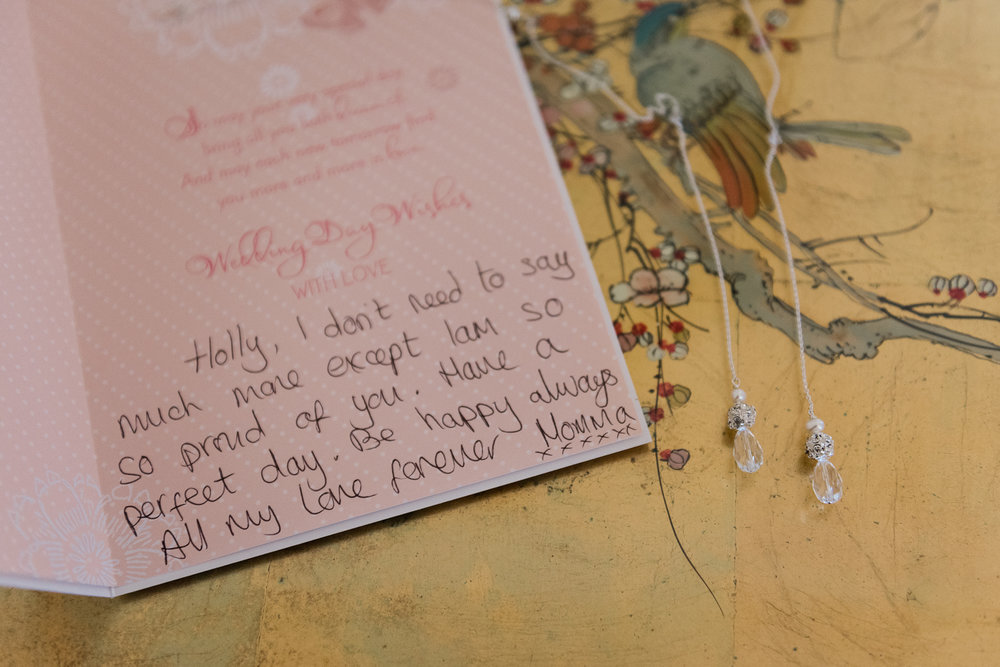 So may your very special day
bring all you wish & dream of
And may each new tomorrow find
you more and more in love.
Wedding Day Wishes
WITH LOVE
Holly, I don't need to say
much more except I am so
so proud of you. Have a
perfect day. Be happy always
All my love forever Momma
xxxxxx